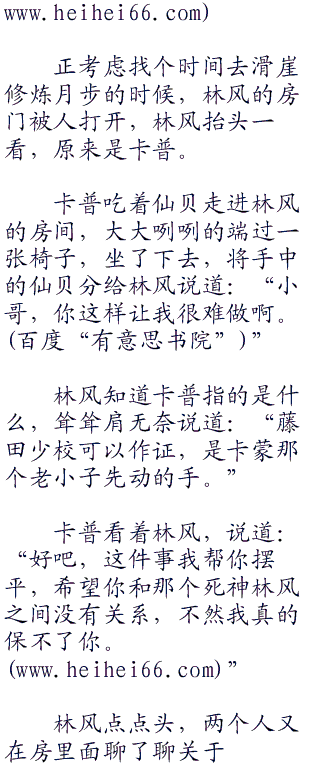 www.heihei66.com)
正考虑找个时间去滑崖
修炼月步的时候，林风的房
门被人打开，林风抬头一
看，原来是卡普。
卡普吃着仙贝走进林风
的房间，大大咧咧的端过一
张椅子，坐了下去，将手中
的仙贝分给林风说道：“小
哥，你这样让我很难做啊。
(百度“有意思书院”)”
林风知道卡普指的是什
么，耸耸肩无奈说道：“藤
田少校可以作证，是卡蒙那
个老小子先动的手。”
卡普看着林风，说道：
“好吧，这件事我帮你摆
平，希望你和那个死神林风
之间没有关系，不然我真的
保不了你。
(www.heihei66.com)”
林风点点头，两个人又
在房里面聊了聊关于